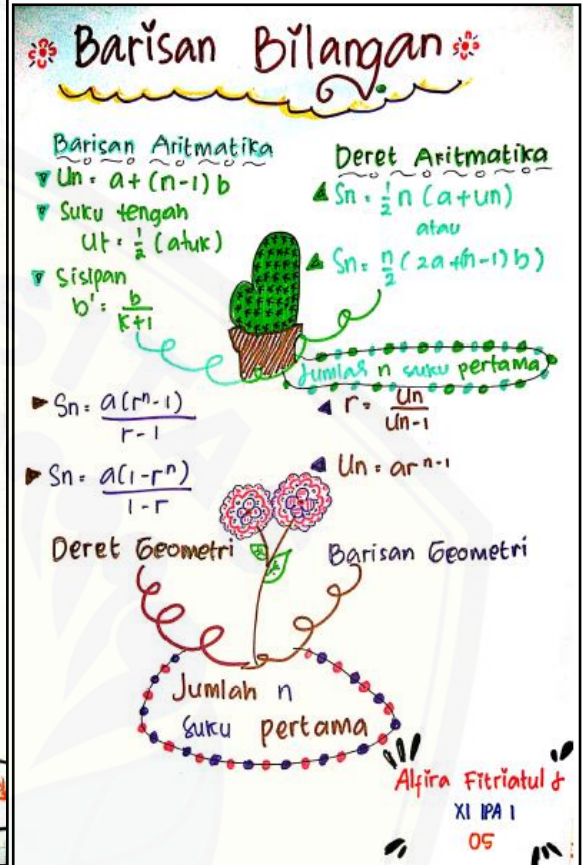 Barisan Bilangan
Barisan Aritmatika
Un = a + (n-1) b
Suku tengah
Ut = 1/2 (a+uk)
Sisipan
b' = b/K+1
Deret Aritmatika
Sn = 1/2 n (a+un)
atau
Sn = n/2 (2a+(n-1) b)
Jumlah n suku pertama
Sn = a(rⁿ-1)/r-1
Sn = a(1-rⁿ)/1-r
Deret Geometri
r = Un/Un-1
Un = arⁿ⁻¹
Barisan Geometri
Jumlah n
suku pertama
Alfira Fitriatul
XI IPA 1
05